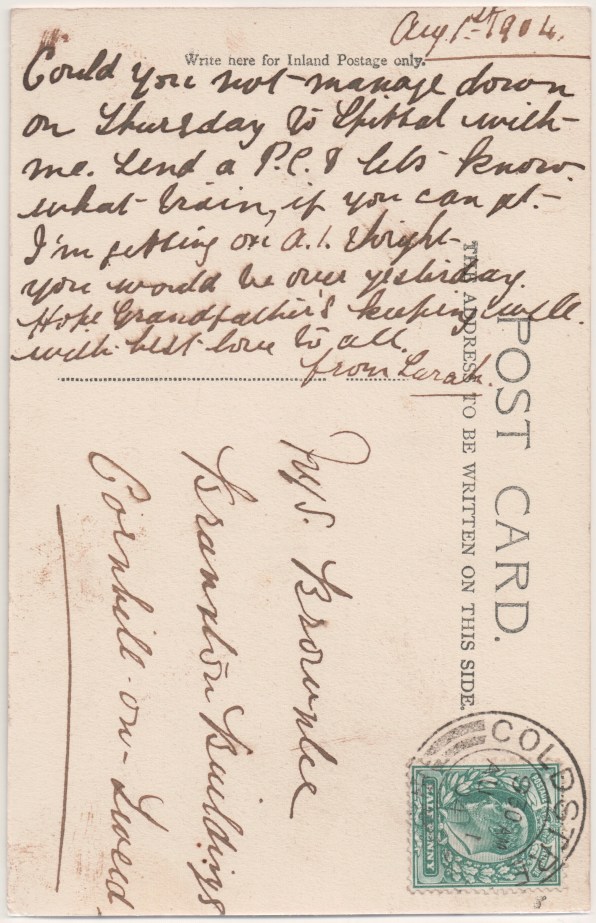 Aug 1st 1904.
Write here for Inland Postage only.
Could you not manage down
on Thursday to Spittal with
me. Send a P.C. & let's know
what train, if you can get.
I'm getting on A.1. thought
you would be over yesterday.
Hope Grandfather's keeping well.
with best love to all.
from Sarah.
POST CARD.
THE ADDRESS TO BE WRITTEN ON THIS SIDE.
Mrs. Brownlee
Branxton Buildings
Cornhill-on-Tweed
COLDSTR
POSTAGE
HALF PENNY